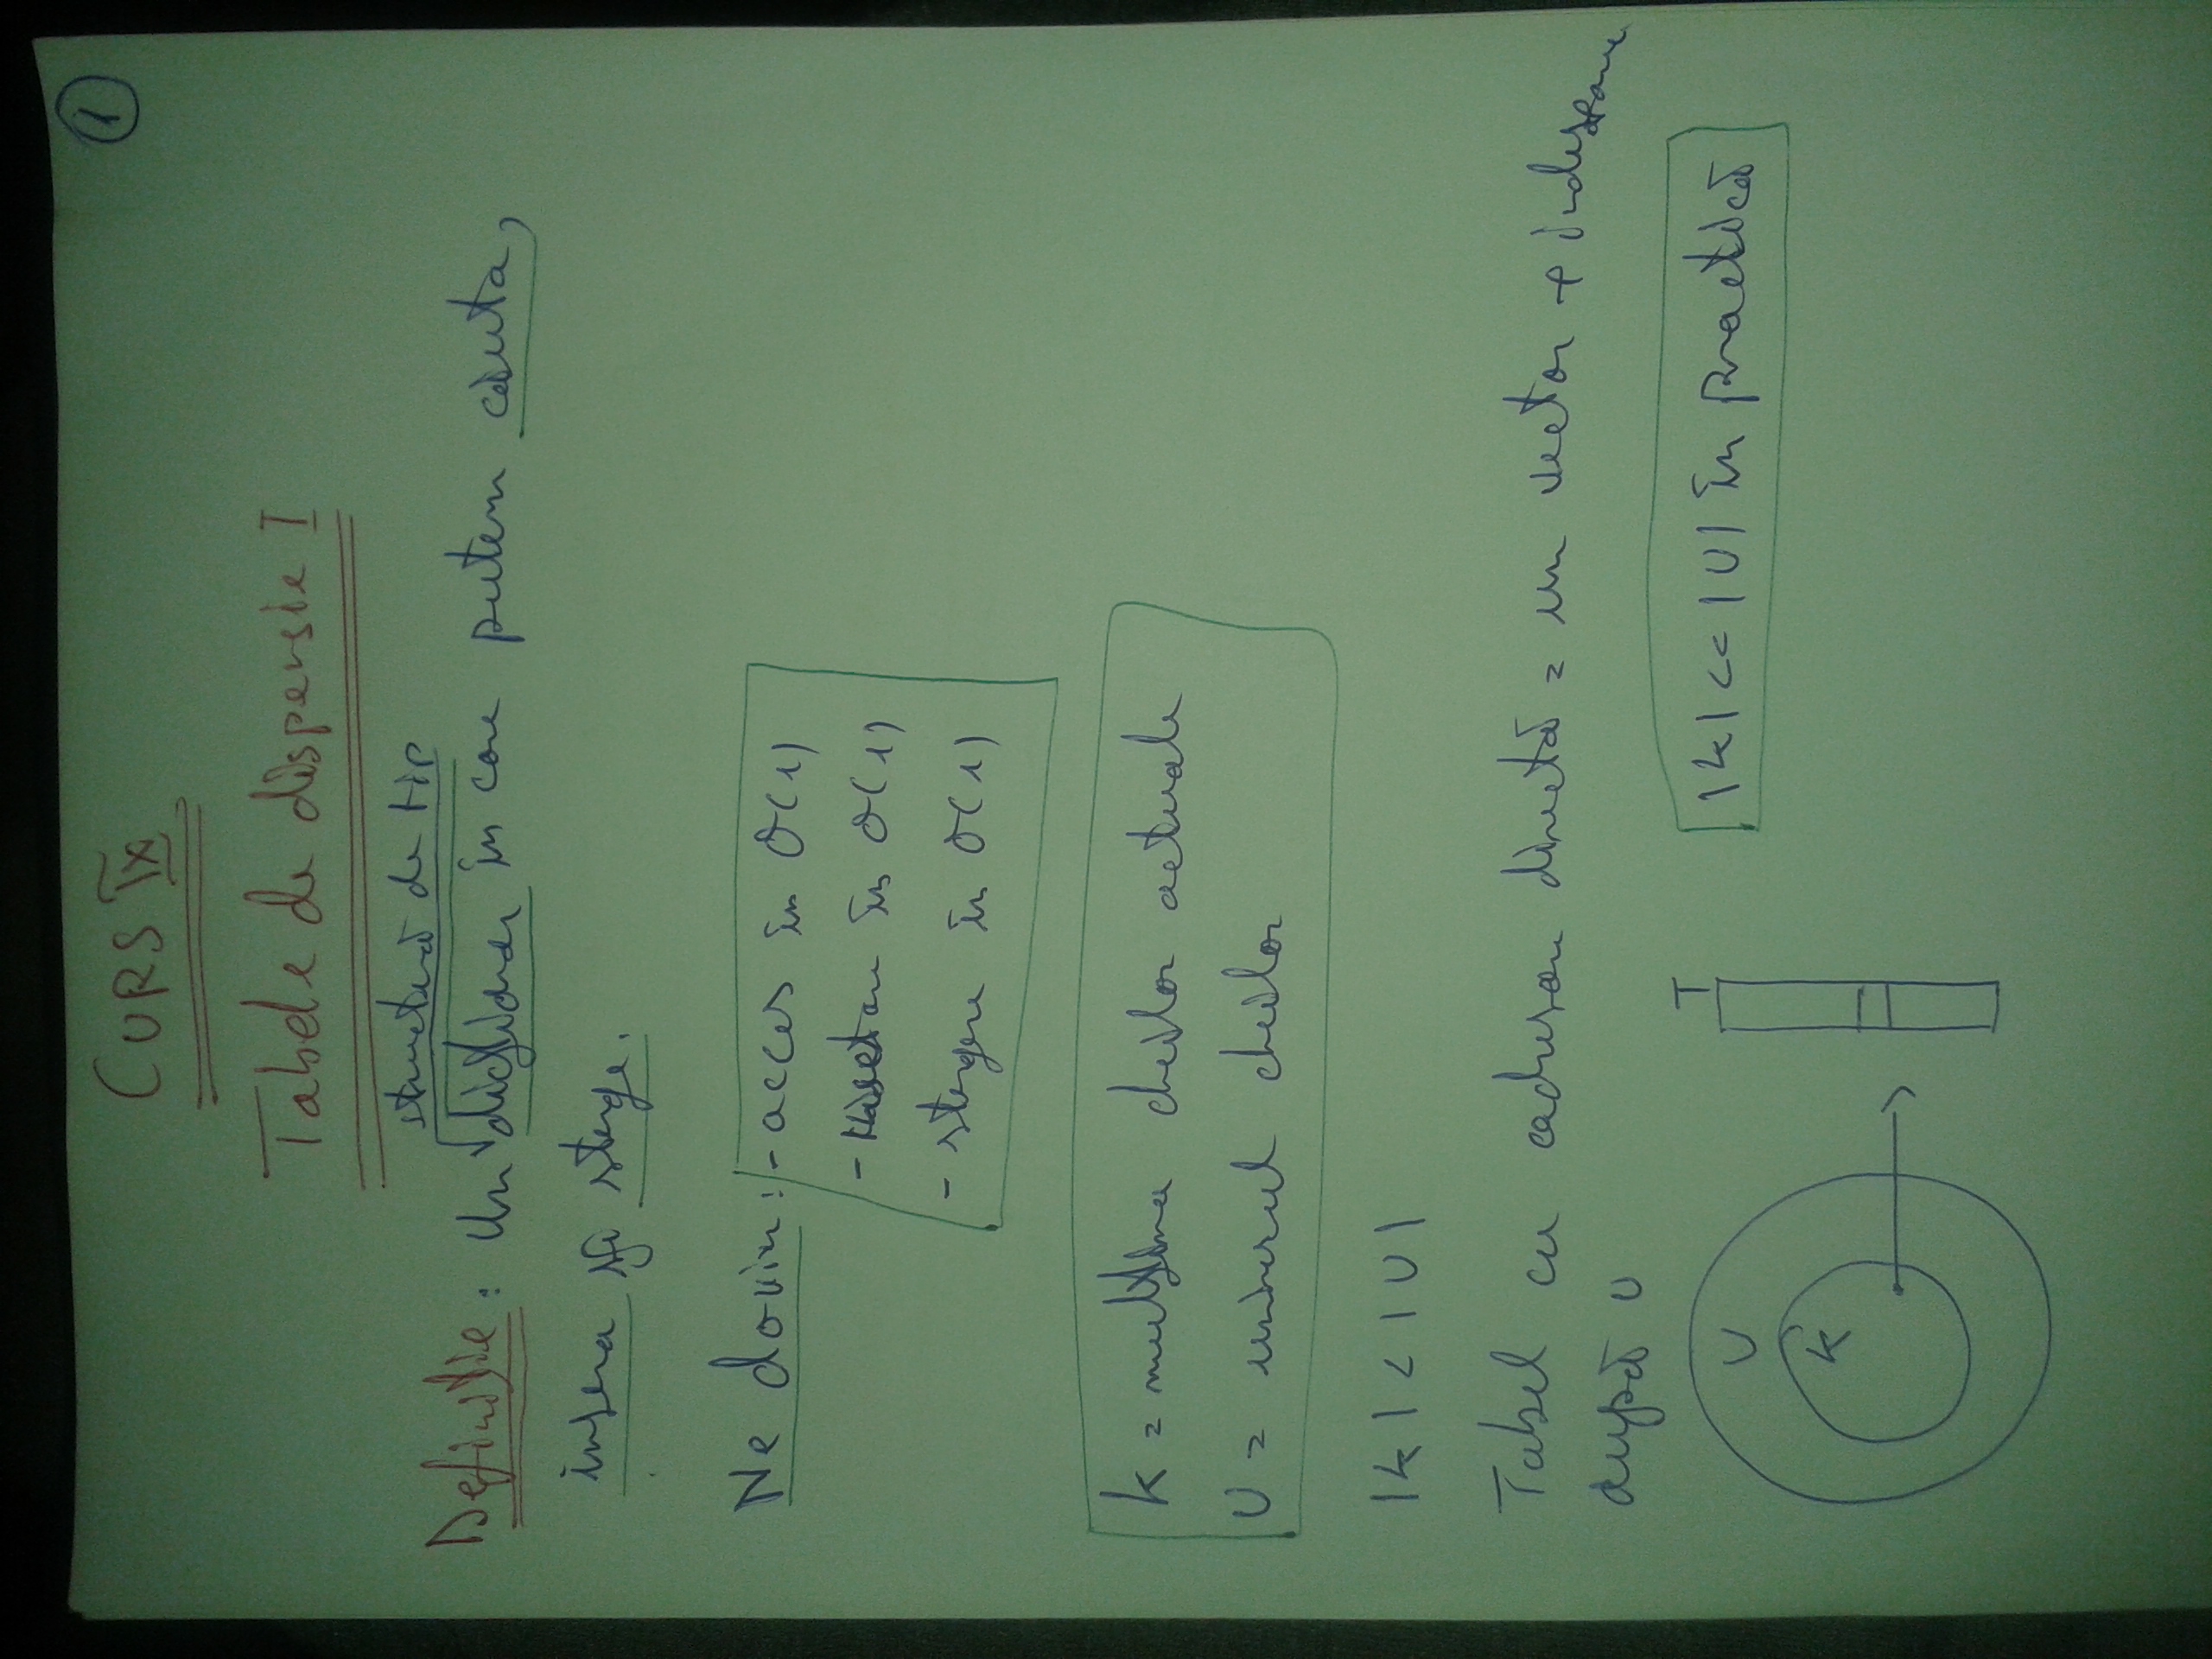 1
CURS IX
Tabele de dispersie I
structură de tip
Definiție: Un dicționar în care putem căuta,
insera și șterge.
Ne dorim: - acces în O(1)
- inserare în O(1)
- ștergere în O(1)
K = mulțimea cheilor actuale
U = universul cheilor
|K| < |U|
Tabel cu adresare directă = un vector + indexare
după U
|K| << |U| în practică
U
K
T